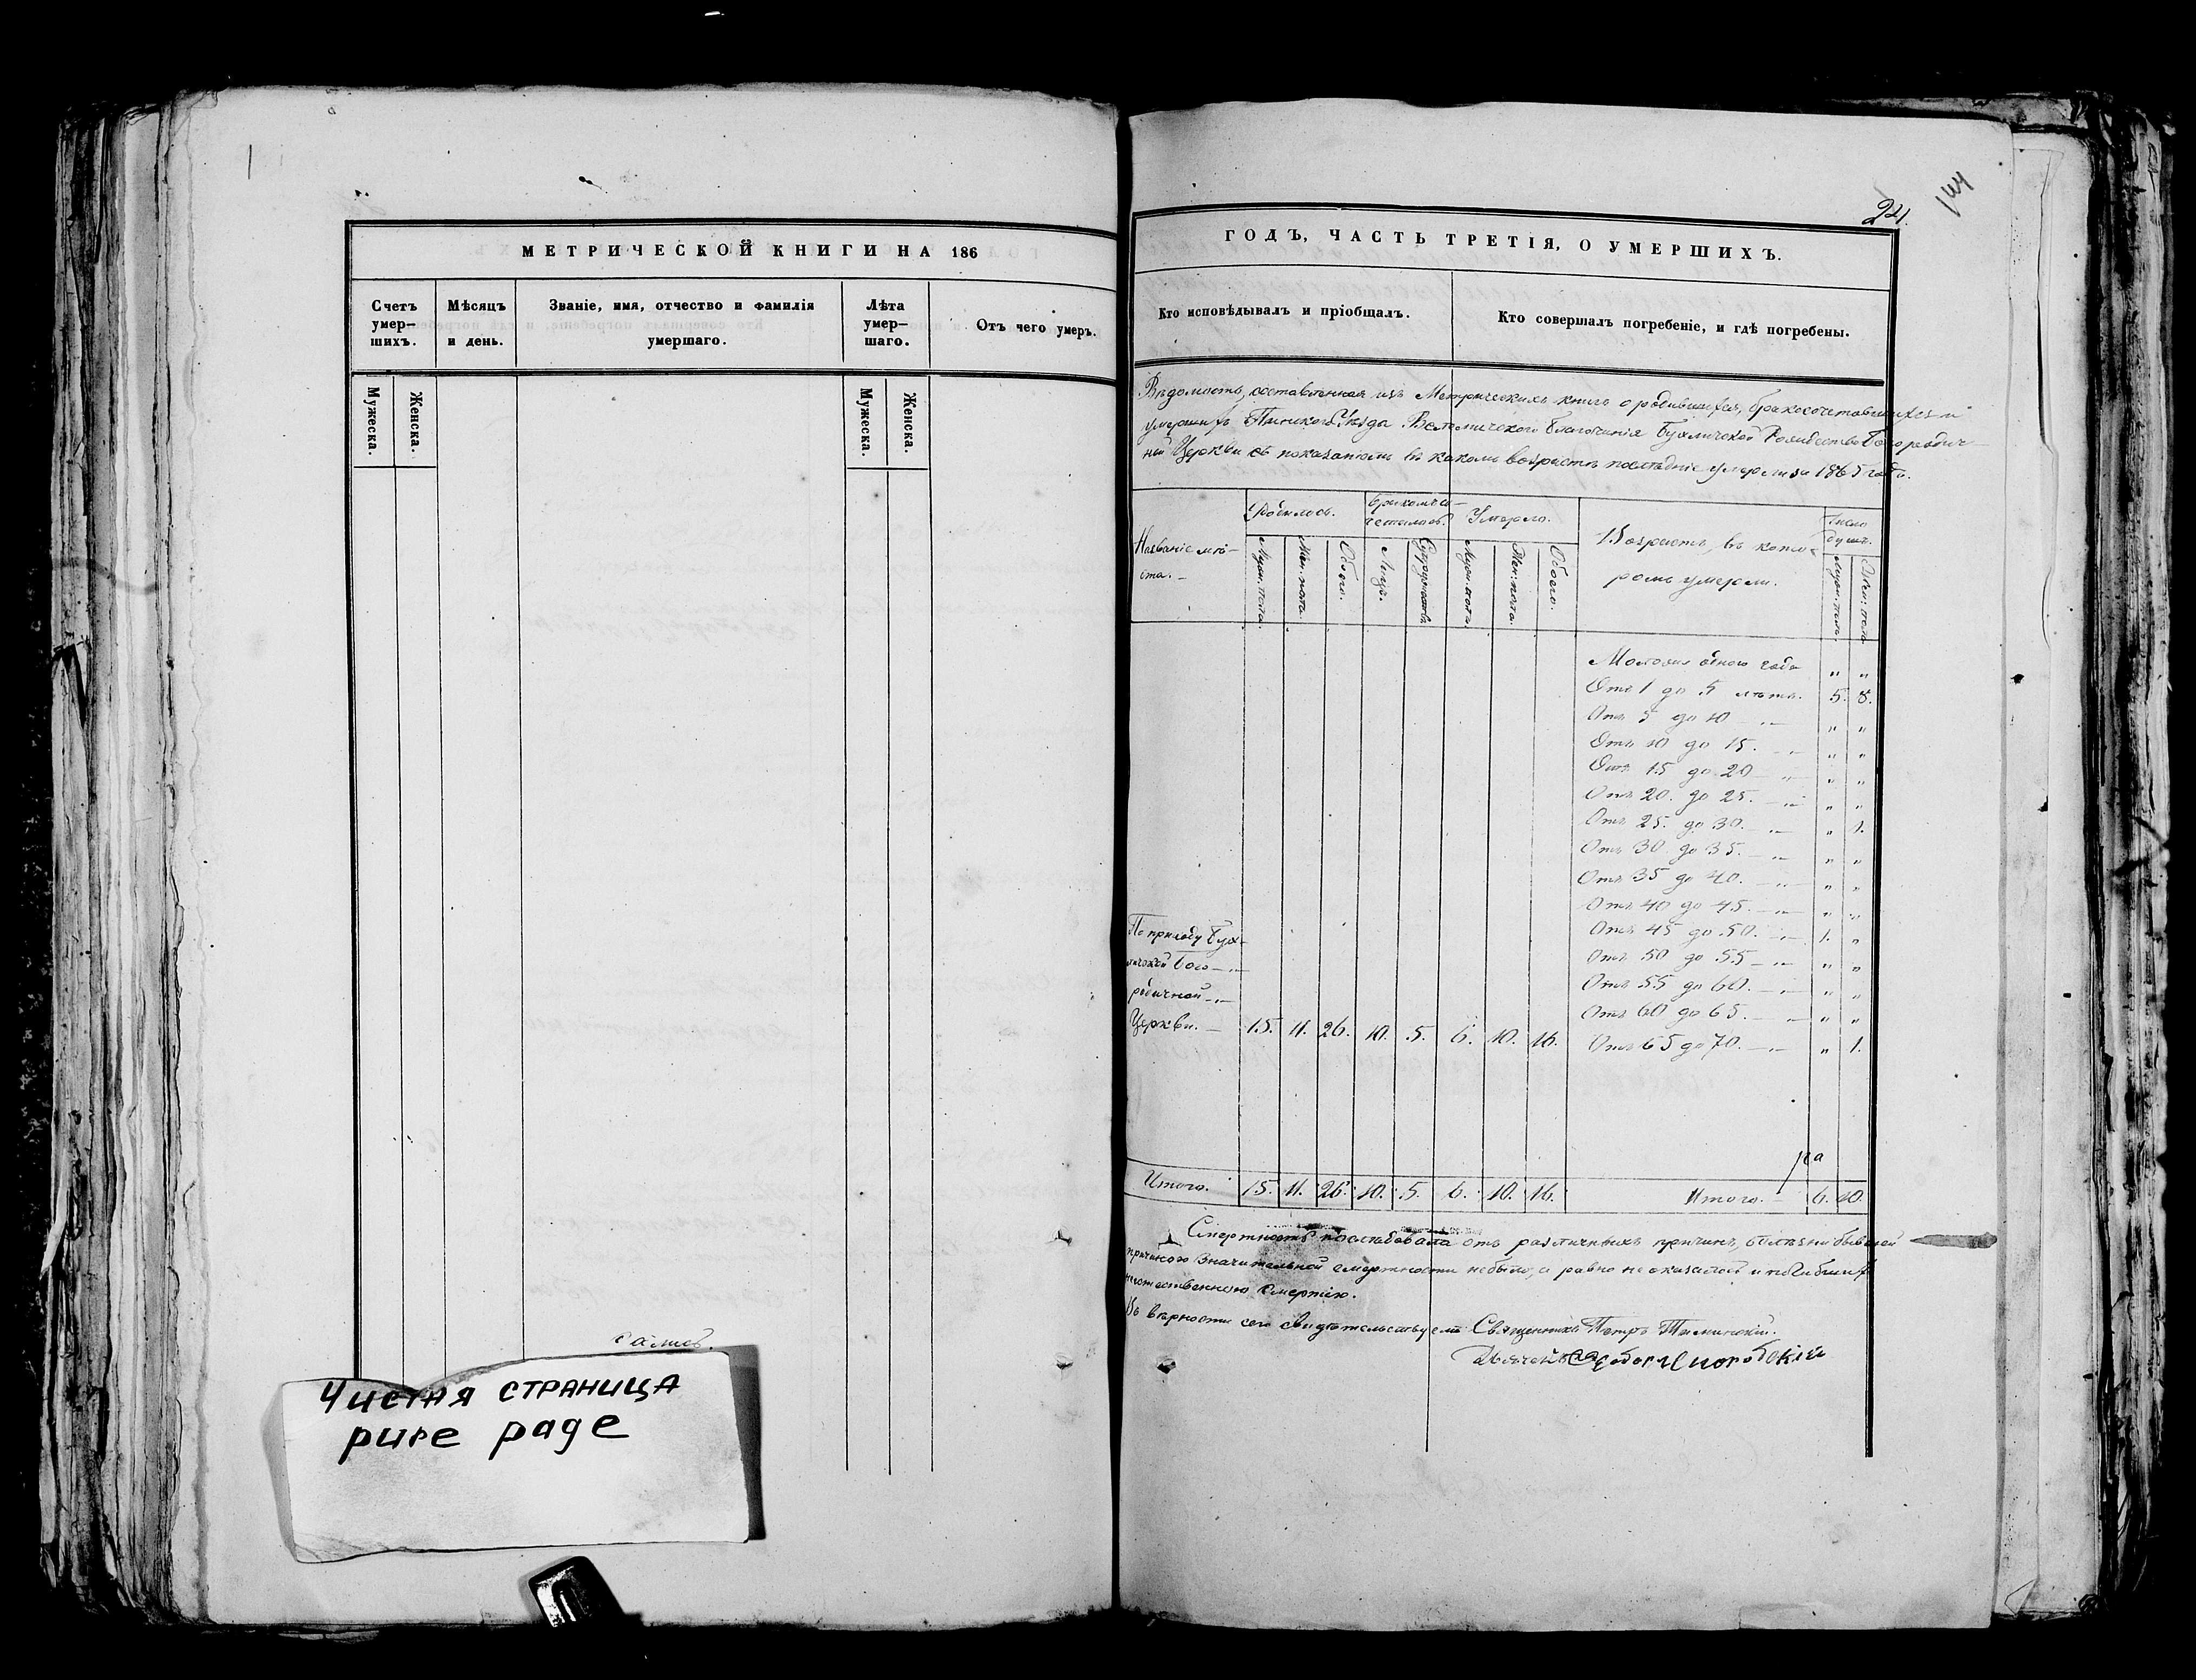 МЕТРИЧЕСКОЙ КНИГИ НА 186
Счетъ умер-шихъ.
Мѣсяцъ и день.
Званіе, имя, отчество и фамилія умершаго.
Лѣта умер-шаго.
Отъ чего умеръ.
Мужеска.
Женска.
Мужеска.
Женска.
Чистая страница
pure page
144
24.
ГОДЪ, ЧАСТЬ ТРЕТІЯ, О УМЕРШИХЪ.
Кто исповѣдывалъ и пріобщалъ.
Кто совершалъ погребеніе, и гдѣ погребены.
Вѣдомость, составленная изъ Метрическихъ книгъ о родившихся, бракосочетавшихся и
умершихъ Пинского Уѣзда Велемичского Благочинія Бухличской Рождество Богородич-
ной Церкви съ показаніемъ въ какомъ возрастѣ послѣдніе умерли за 1865 годъ.
Названіе мѣ-
ста. –
Родилось.
Бракомъ со-
четалось.
Умерло.
Возрастъ, въ кото-
ромъ умерли.
Число
душъ.
Муж. пола.
Жен. пола.
Обоего.
Лицъ.
Супружествъ
Муж. пола.
Жен. пола.
Обоего.
Муж. пола.
Жен. пола.
Моложе одного года " "
Отъ 1 до 5 лѣтъ. 5. 8.
Отъ 5 до 10 –"– " "
Отъ 10 до 15. –"– " "
Отъ 15 до 20 –"– " "
Отъ 20. до 25. –"– " "
Отъ 25. до 30. –"– " 1.
Отъ 30 до 35. –"– " "
Отъ 35 до 40. –"– " "
Отъ 40 до 45. –"– " "
Отъ 45 до 50. –"– 1. "
Отъ 50 до 55 –"– " "
Отъ 55 до 60. –"– " "
Отъ 60 до 65. –"– " "
Отъ 65 до 70. –"– " 1.
По приходу Бух-
личской Бого-
родичной
Церкви. – 15. 11. 26. 10. 5. 6. 10. 16.
Итого. 15. 11. 26. 10. 5. 6. 10. 16. Итого. – 6. 10.
Смертность послѣдовала отъ различныхъ причинъ, болѣзни бывшей
причиною значительной смертности небыло, а равно не оказалось и погибшихъ
неестественною смертію.
Въ вѣрности сего свидѣтельствуемъ Священникъ Петръ
Дьячекъ